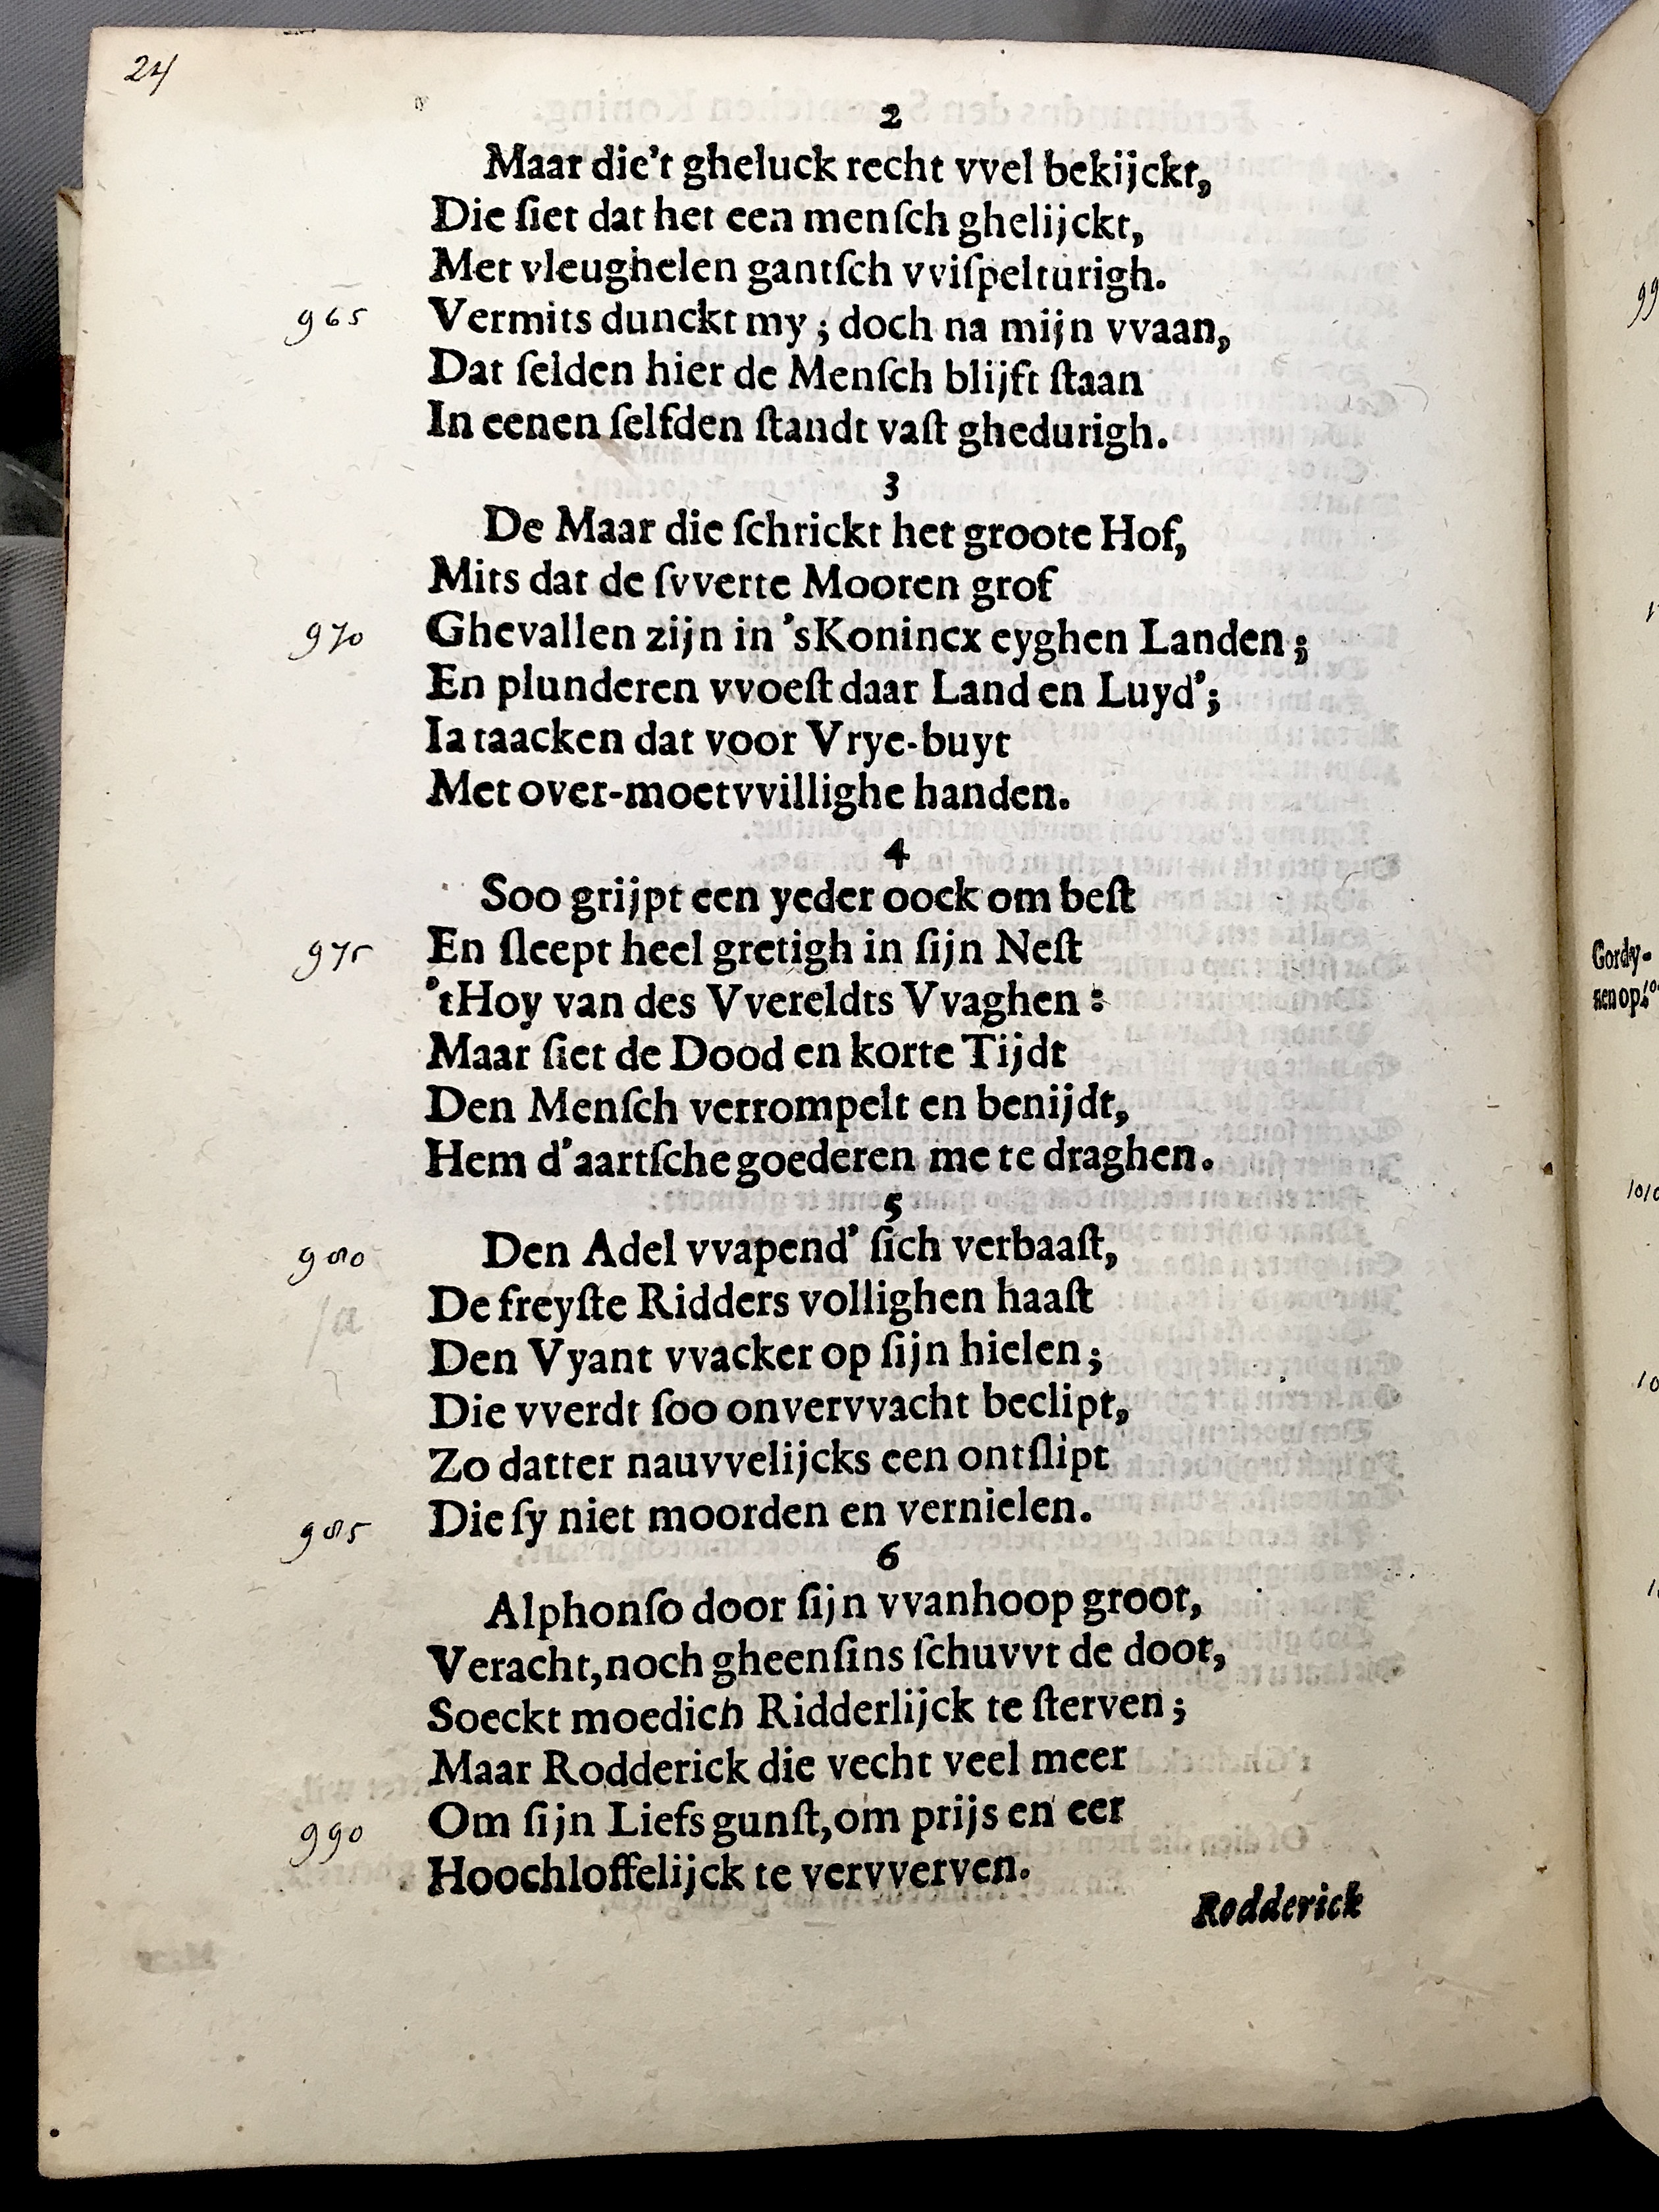 24
2
Maar die't gheluck recht vvel bekijckt,
Die ſiet dat het een menſch ghelijckt,
Met vleughelen gantſch vviſpelturigh.
965 Vermits dunckt my ; doch na mijn vvaan,
Dat ſelden hier de Menſch blijft ſtaan
In eenen ſelfden ſtandt vaſt ghedurigh.
3
De Maar die ſchrickt het groote Hof,
Mits dat de ſvverte Mooren grof
970 Ghevallen zijn in 'sKonincx eyghen Landen ;
En plunderen vvoeſt daar Land en Luyd' ;
Ia taacken dat voor Vrye-buyt
Met over-moetvvillighe handen.
4
Soo grijpt een yeder oock om beſt
975 En ſleept heel gretigh in ſijn Neſt
'tHoy van des Vvereldts Vvaghen :
Maar ſiet de Dood en korte Tijdt
Den Menſch verrompelt en benijdt,
Hem d'aartſche goederen me te draghen.
5
980 Den Adel vvapend' ſich verbaaſt,
De freyſte Ridders vollighen haaſt
Den Vyant vvacker op ſijn hielen ;
Die vverdt ſoo onvervvacht beclipt,
Zo datter nauvvelijcks een ontſlipt
985 Die ſy niet moorden en vernielen.
6
Alphonſo door ſijn vvanhoop groot,
Veracht, noch gheenſins ſchuvvt de doot,
Soeckt moedich Ridderlijck te ſterven ;
Maar Rodderick die vecht veel meer
990 Om ſijn Liefs gunſt, om prijs en eer
Hoochloffelijck te vervverven.
Rodderick
Gordy-
nen op.
1010